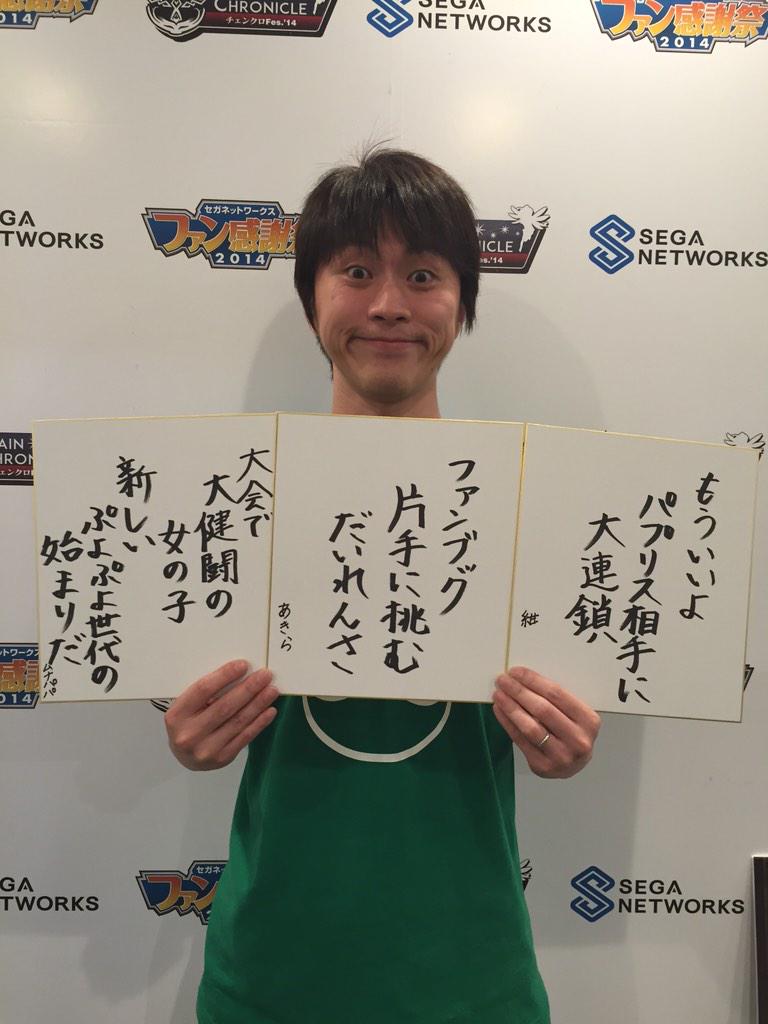 CHRONICLE
チェンクロFes.'14
SEGA
NETWORKS
ファン感謝祭
2014
GA
TWORKS
セガネットワークス
ファン感謝祭
2014
NICLE
es.'14
SEGA
NETWORKS
AIN
HRON
チェンクロ
もういいよ
パプリス相手に
大連鎖
紺
ファンブック
片手に挑む
だいれんさ
あきら
大会で
大健闘の
女の子
新しい
ぷよぷよ世代の
始まりだ
ムナパパ
ットワークス
感謝
014
GA
TWORKS
セガネ
ファン
SEGA
NETWORKS